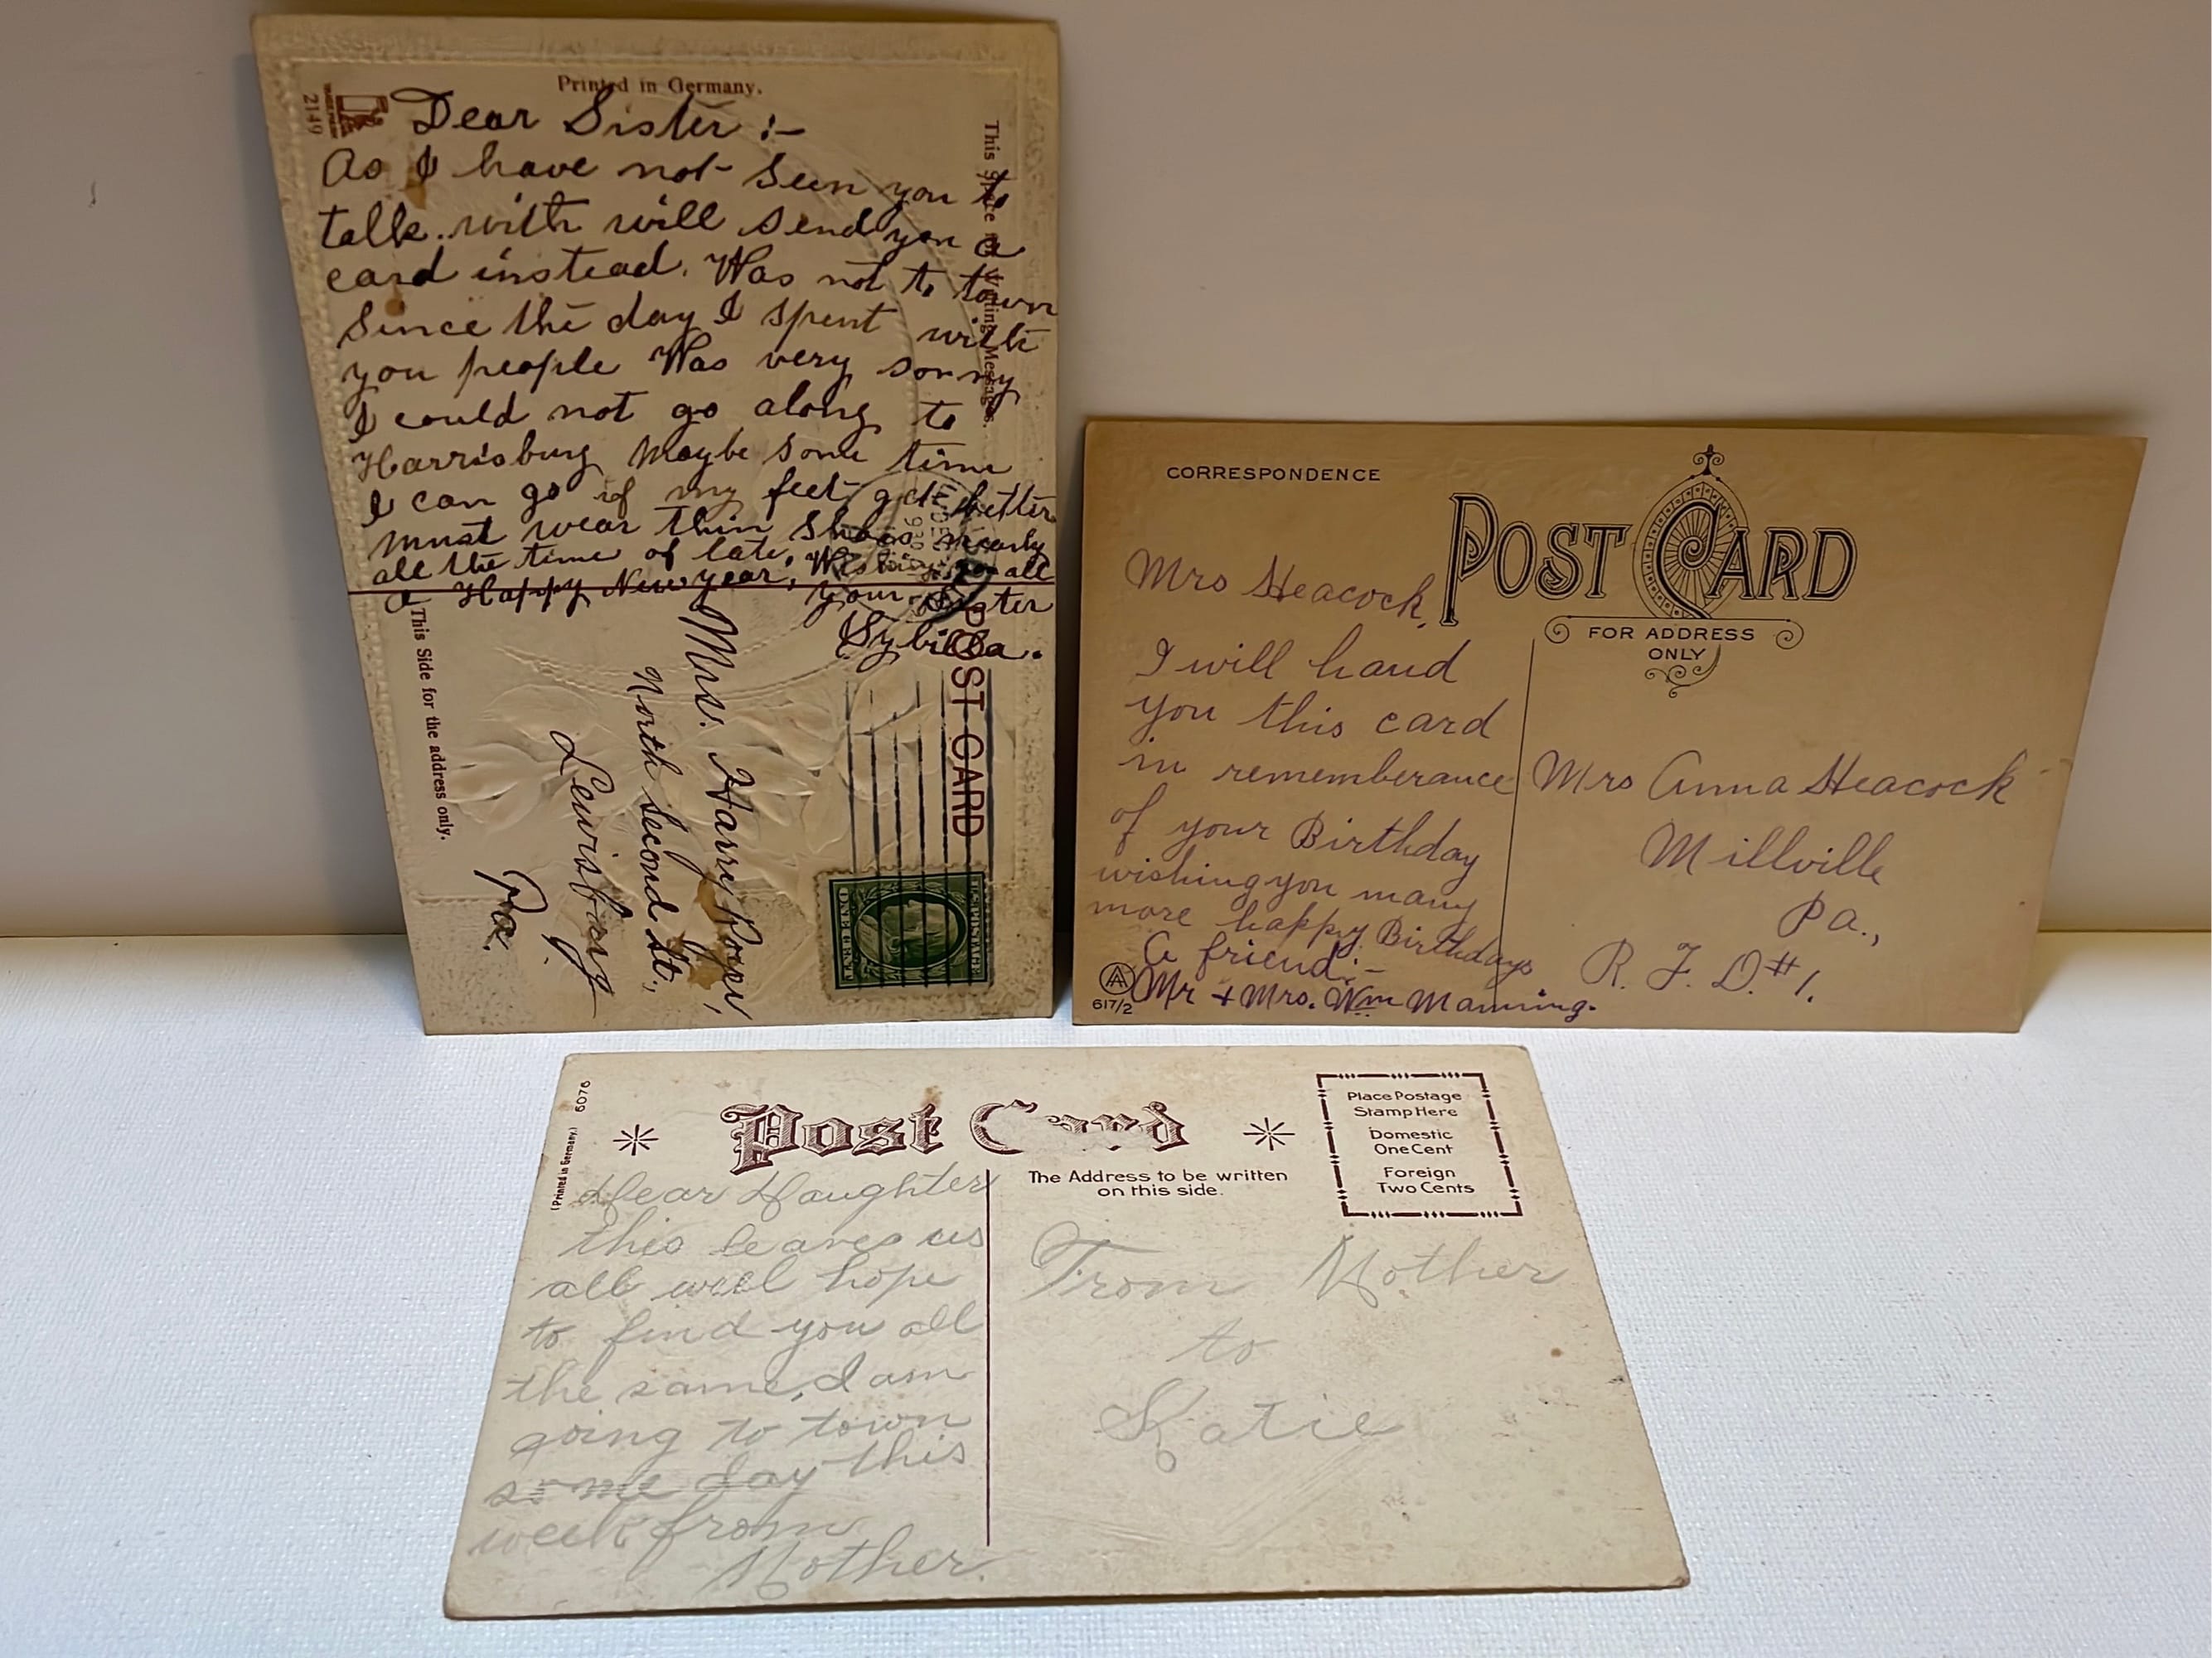 Printed in Germany.
2149
Dear Sister :-
As I have not seen you to
talk with will send you a
card instead. Was not to town
since the day I spent with
you people Was very sorry
I could not go along to
Harrisburg Maybe some time
I can go if my feet get better
must wear thin shoes nearly
all the time of late. Wishing you all
a Happy New year, your Sister
Sybilla.
This Space for Writing Messages.
POST CARD
This Side for the address only.
Mrs. Harry
North Second St.,
Lewisburg
Pa.
CORRESPONDENCE
POST CARD
FOR ADDRESS
ONLY
Mrs Heacock,
I will hand
you this card
in rememberance
of your Birthday
wishing you many
more happy Birthdays
A friend:-
Mr + Mrs. Wm Manning.
AA
617/2
Mrs Anna Heacock
Millville
Pa.,
R. F. D. #1.
(Printed in Germany.) 6076
Post Card
The Address to be written
on this side.
Place Postage
Stamp Here
Domestic
One Cent
Foreign
Two Cents
Dear Daughter
this leaves us
all well hope
to find you all
the same, I am
going to town
some day this
week from
Mother.
From Mother
to
Katie